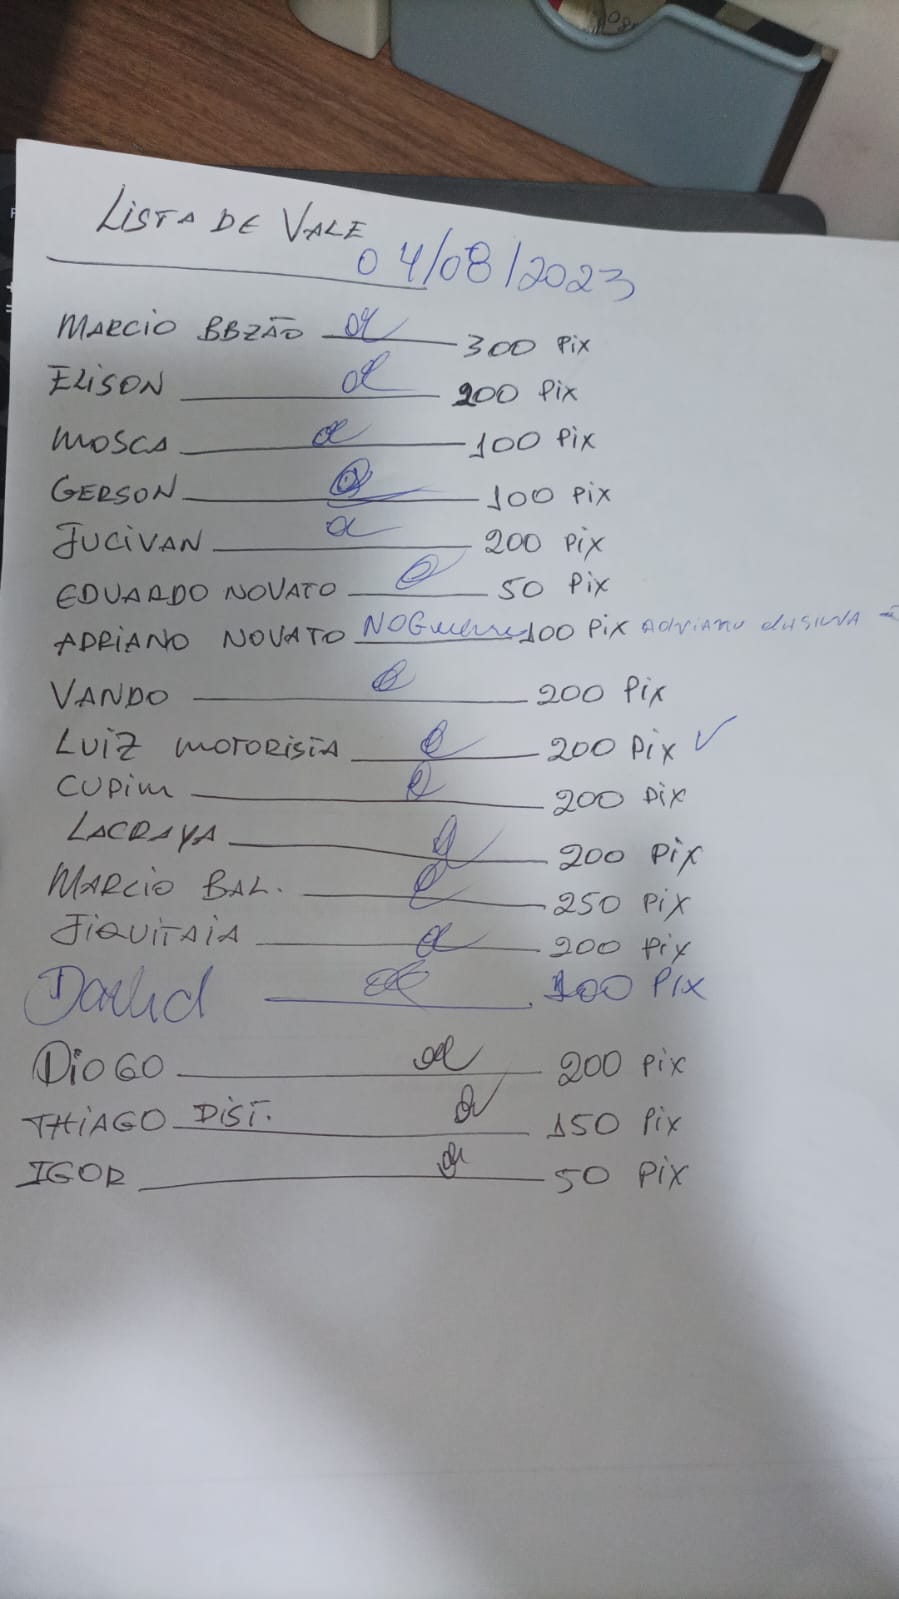 LISTA DE VALE
04/08/2023
MARCIO BBZÃO 300 PiX
ELISON 200 PiX
MOSCA 100 PiX
GERSON 100 PiX
JUCIVAN 200 PiX
EDUARDO NOVATO 50 PiX
ADRIANO NOVATO 100 PiX ADriano
VANDO 200 PiX
LUIZ MOTORISTA 200 PiX ✓
CUPim 200 PiX
LACRAYA 200 PiX
MARCIO BAL. 250 PiX
JIQUITAIA 200 PiX
100 PIX
DIOGO 200 PiX
THIAGO DIST. 150 PiX
IGOR 50 PiX